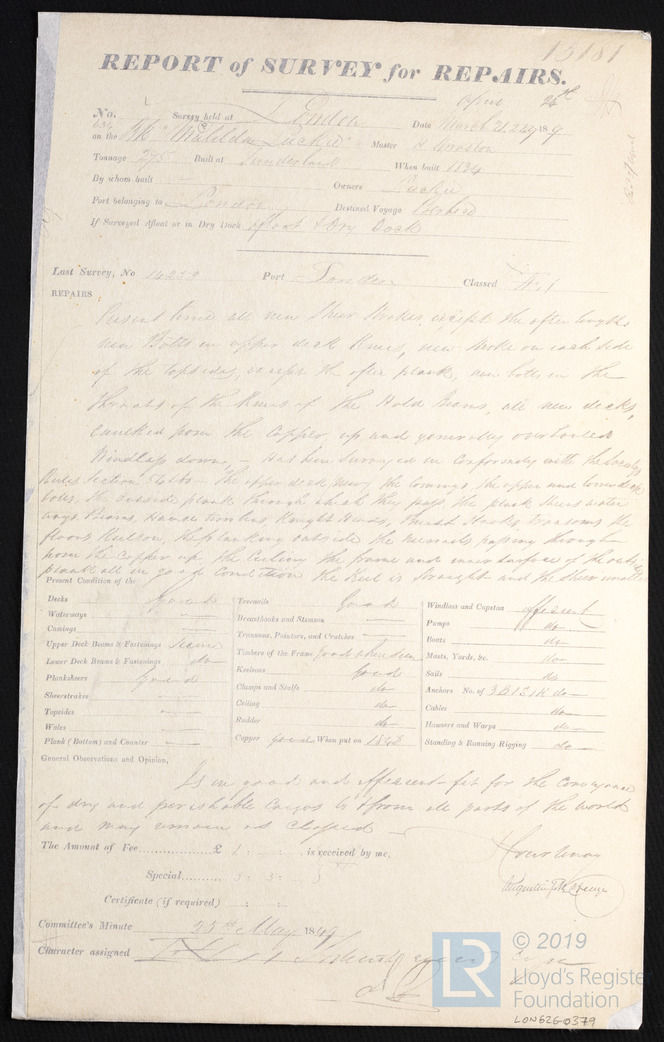 15181
REPORT of SURVEY for REPAIRS.
April 24th
No. 634 Survey held at London Date March 21, 22, 1849
on the Bk "Matilda Luckie" Master
Tonnage 275 Built at Sunderland When built 1834
By whom built Owners Luckie
Port belonging to London Destined Voyage
If Surveyed Afloat or in Dry Dock Afloat & Dry Dock
Last Survey, No 14253 Port London Classed Æ 1
REPAIRS
Present time all new Sheer Strakes, except the after lengths
new Bolts in upper deck Knees, new strake on each side
of the topsides, except the after plank, new bolts in the
Throats of the Knees of the Hold Beams, all new decks,
caulked from the Copper, up and generally overhauled
Windlass down, – Has been surveyed in conformity with the
Rules Section 54 – The upper deck, the comings, the upper and lower deck
bolts, the outside plank through which they pass the plank Sheers water
ways Beams, Hawse timbers Knight Heads, Breast Hooks, transoms the
floors Keelson, the planking outside the passing through
from the Copper up the Ceiling the frame and inner surface of the outside
plank all in good Condition the Keel is Straight and the Sheer
Present Condition of the
Decks Good
Waterways —
Comings —
Upper Deck Beams & Fastenings
Lower Deck Beams & Fastenings do
Planksheers Good
Sheerstrakes —
Topsides —
Wales —
Plank (Bottom) and Counter —
Treenails Good
Breasthooks and Stemson —
Transoms, Pointers, and Crutches —
Timbers of the Frame Good
Keelsons Good
Clamps and Shelfs do
Ceiling do
Rudder do
Copper Good When put on 1848
Windlass and Capstan effescent
Pumps do
Boats do
Masts, Yards, &c. do
Sails do
Anchors No. of 3B 1S 1K do
Cables do
Hawsers and Warps do
Standing & Running Rigging do
General Observations and Opinion,
Is in good and effescent fit for the Conveyance
of dry and perishable Cargos to & from all parts of the world
and may remain as Classed —
The Amount of Fee £ 1 : - : - is received by me,
Special 3 : 3 : -
Certificate (if required) : - :
Committee's Minute 25th May 1849
Character assigned
LR
© 2019
Lloyd's Register
Foundation
LON626-0379